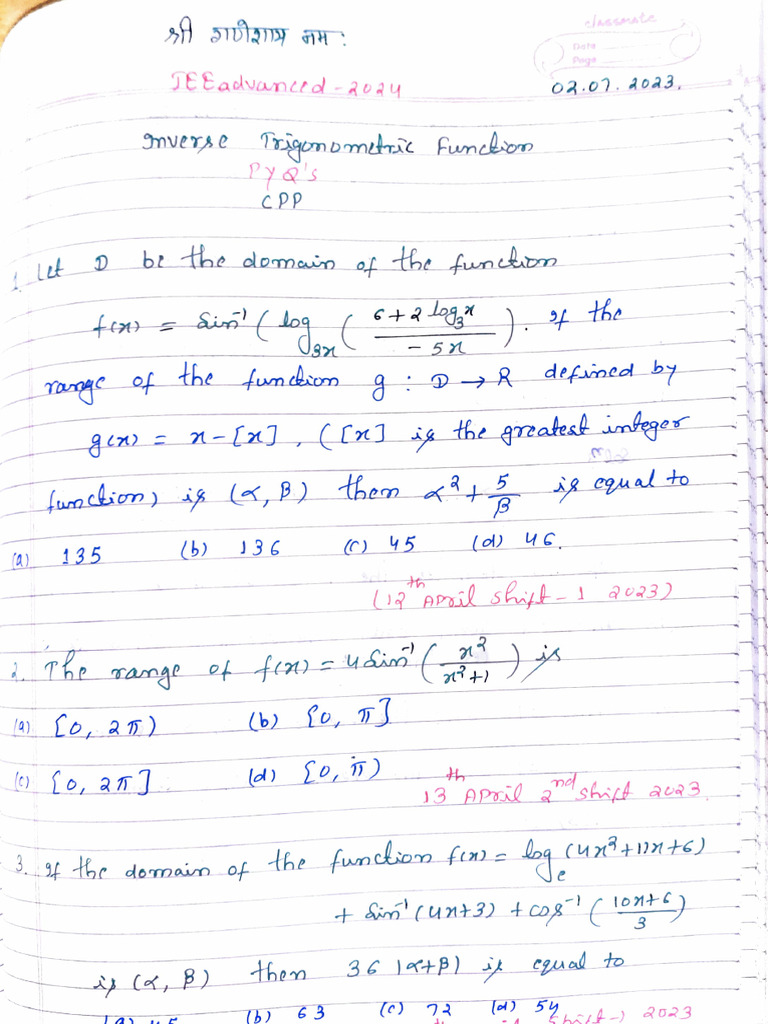 श्री गणेशाय नम:
classmate
Date
Page
JEEadvanced - 2024
02.07.2023.
Inverse Trigonometric Function
PYQ's
CPP
1. Let D be the domain of the function
f(x) = Sin⁻¹ ( log₃ₓ ( (6+2 log₃x)/(-5x) ) . If the
range of the function g : D → R defined by
g(x) = x-[x] , ([x] is the greatest integer
function) is (α, β) then α² + 5/β is equal to
(a) 135 (b) 136 (c) 45 (d) 46.
(12th April Shift - 1 2023)
2. The range of f(x) = 4Sin⁻¹ ( x²/(x²+1) ) is
(a) [0, 2π) (b) [0, π]
(c) [0, 2π] (d) [0, π)
13th April 2nd shift 2023
3. If the domain of the function f(x) = logₑ (4x²+11x+6)
+ Sin⁻¹ (4x+3) + cos⁻¹ ( (10x+6)/3 )
is (α, β) then 36 |α+β| is equal to
(a) 45 (b) 63 (c) 72 (d) 54
2023